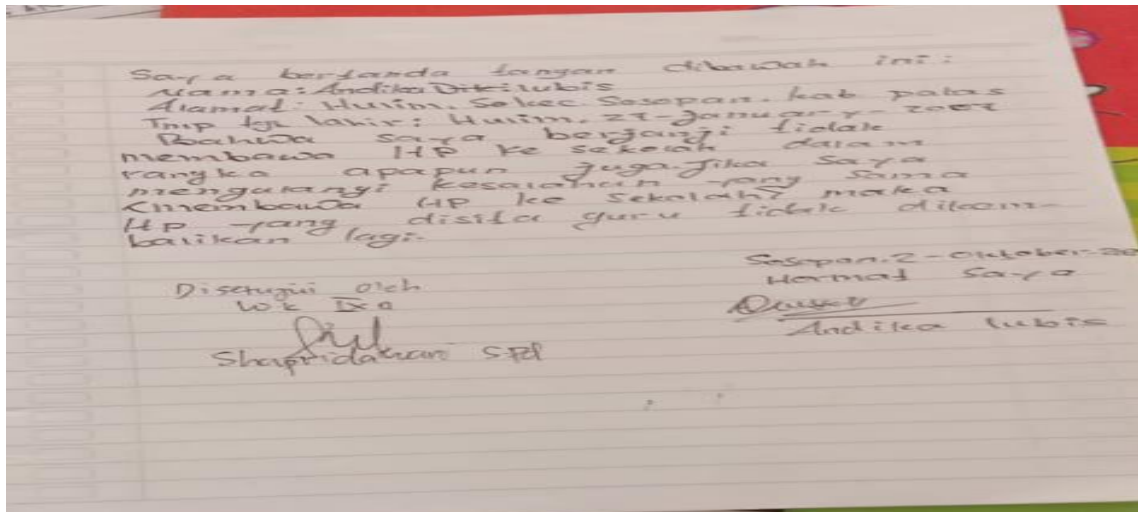 Saya bertanda tangan dibawah ini:
Nama: Andika Diki lubis
Alamat: Hulim. So kec Sosopan. kab palas
Tmp tgl lahir: Hulim. 27-January-
Bahwa saya berjanji tidak
membawa HP ke sekolah dalam
rangka apapun juga. Jika saya
mengulangi kesalahan yang sama
(membawa HP ke sekolah) maka
HP yang disita guru tidak dikem-
balikan lagi.
Sosopan. 2-Oktober-20
Disetujui oleh
Hormat saya
Wk IX a
Andika lubis
S.Pd